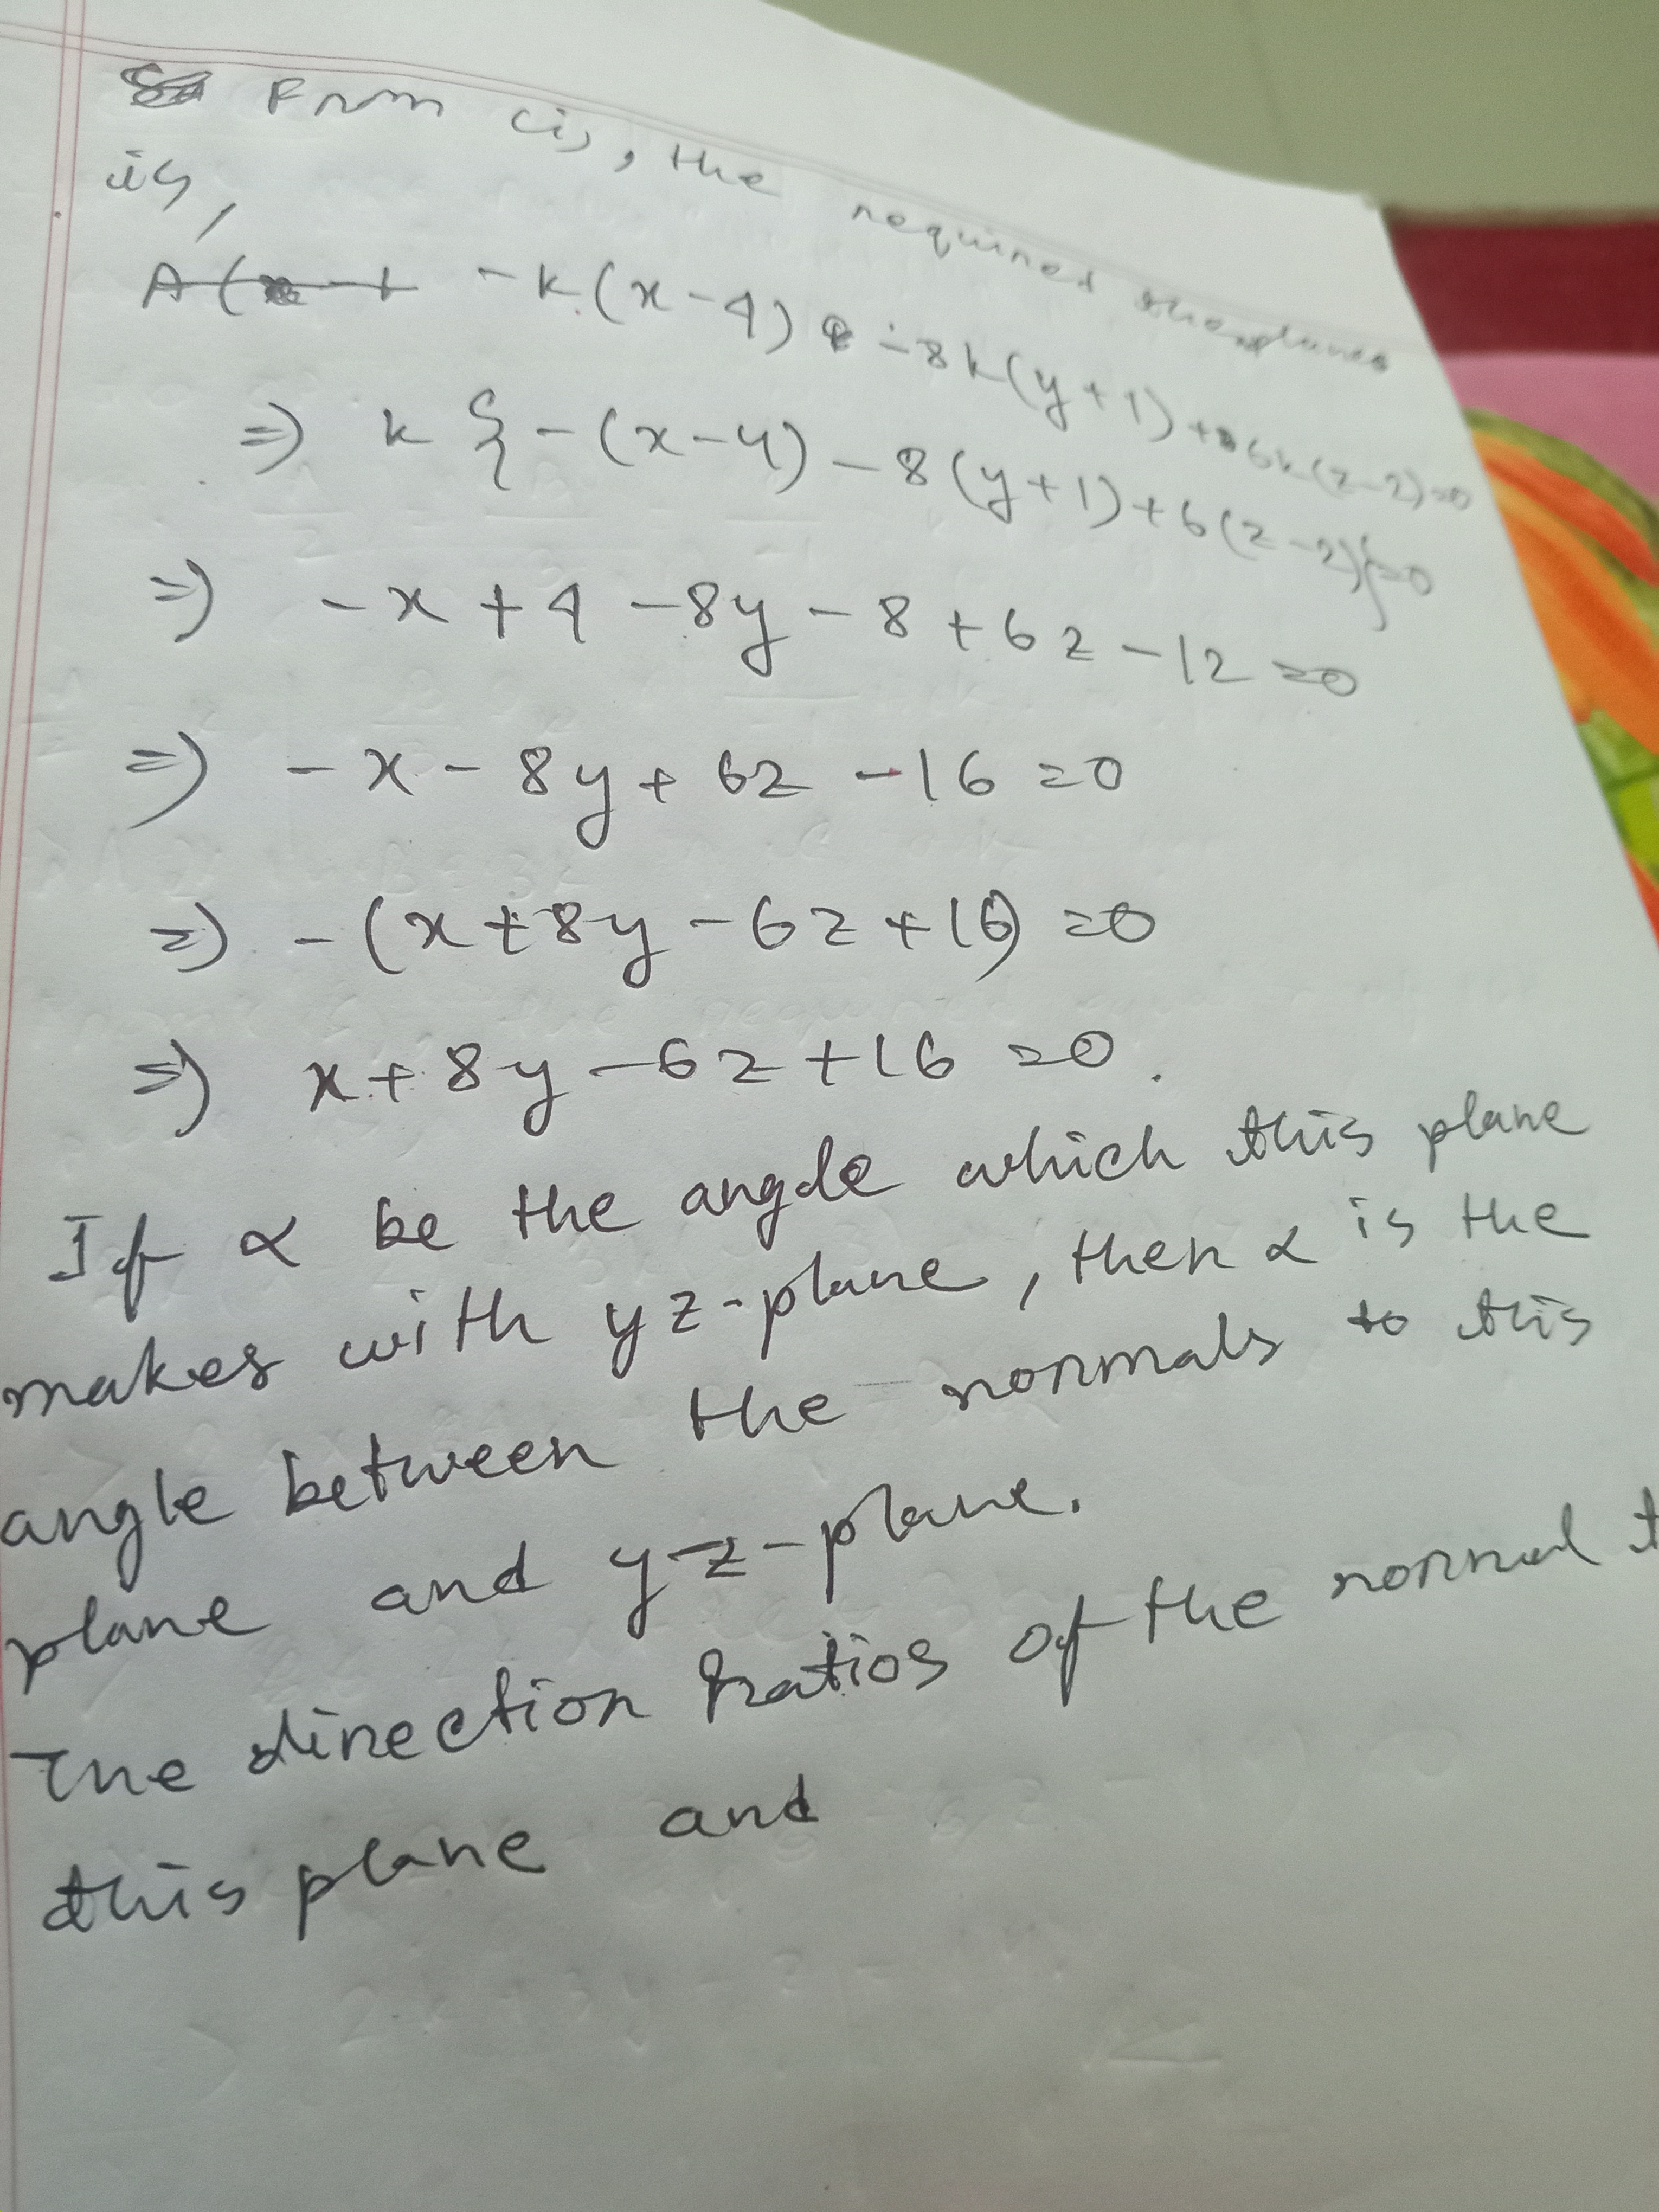 From (i), the required the planes
is,
-k(x-4) -8k(y+1)+6k(z-2)=0
=> k {-(x-4)-8(y+1)+6(z-2)}=0
=> -x+4-8y-8+6z-12=0
=> -x-8y+6z-16=0
=> -(x+8y-6z+16)=0
=> x+8y-6z+16=0.
If α be the angle which this plane
makes with yz-plane, then α is the
angle between the normals to this
plane and yz-plane.
The direction ratios of the normal t
this plane and